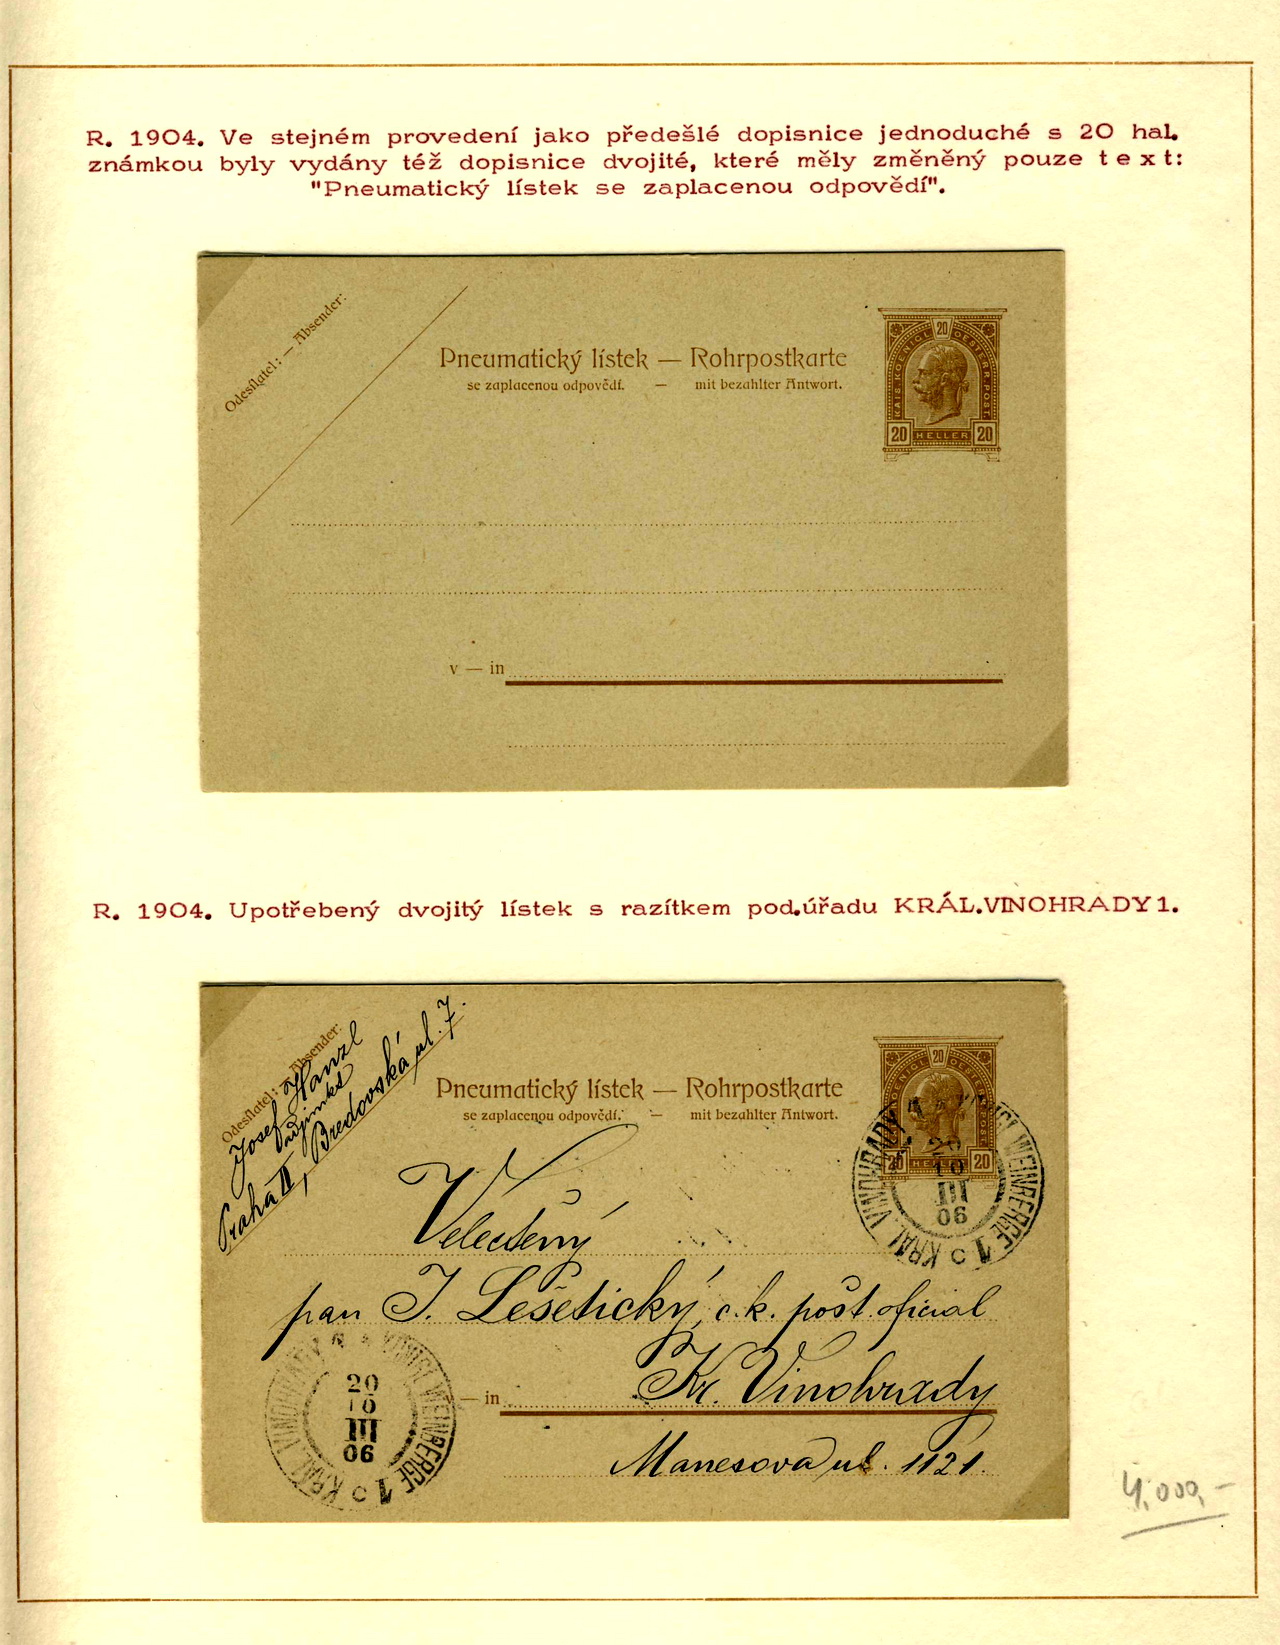 R. 1904. Ve stejném provedení jako předešlé dopisnice jednoduché s 20 hal.
známkou byly vydány též dopisnice dvojité, které měly změněný pouze text:
"Pneumatický lístek se zaplacenou odpovědí".
Odesílatel: — Absender:
Pneumatický lístek — Rohrpostkarte
se zaplacenou odpovědí. — mit bezahlter Antwort.
KAIS. KOENIGL. 20 OESTERR. POST.
20 HELLER 20
v — in
R. 1904. Upotřebený dvojitý lístek s razítkem pod.úřadu KRÁL.VINOHRADY 1.
Odesílatel: — Absender:
Josef Hanzl
Praha II, Bredovská ul. 7.
Pneumatický lístek — Rohrpostkarte
se zaplacenou odpovědí. — mit bezahlter Antwort.
20
20 HELLER 20
KRÁL. VINOHRADY KÖNIGL. WEINBERGE 1
20
10
III
06
Velectěný
pan J. Lešetický, c. k. pošt. oficial
in Kr. Vinohrady
Manesova ul. 1121.
KRÁL. VINOHRADY KÖNIGL. WEINBERGE 1
20
10
III
06
4.000,-